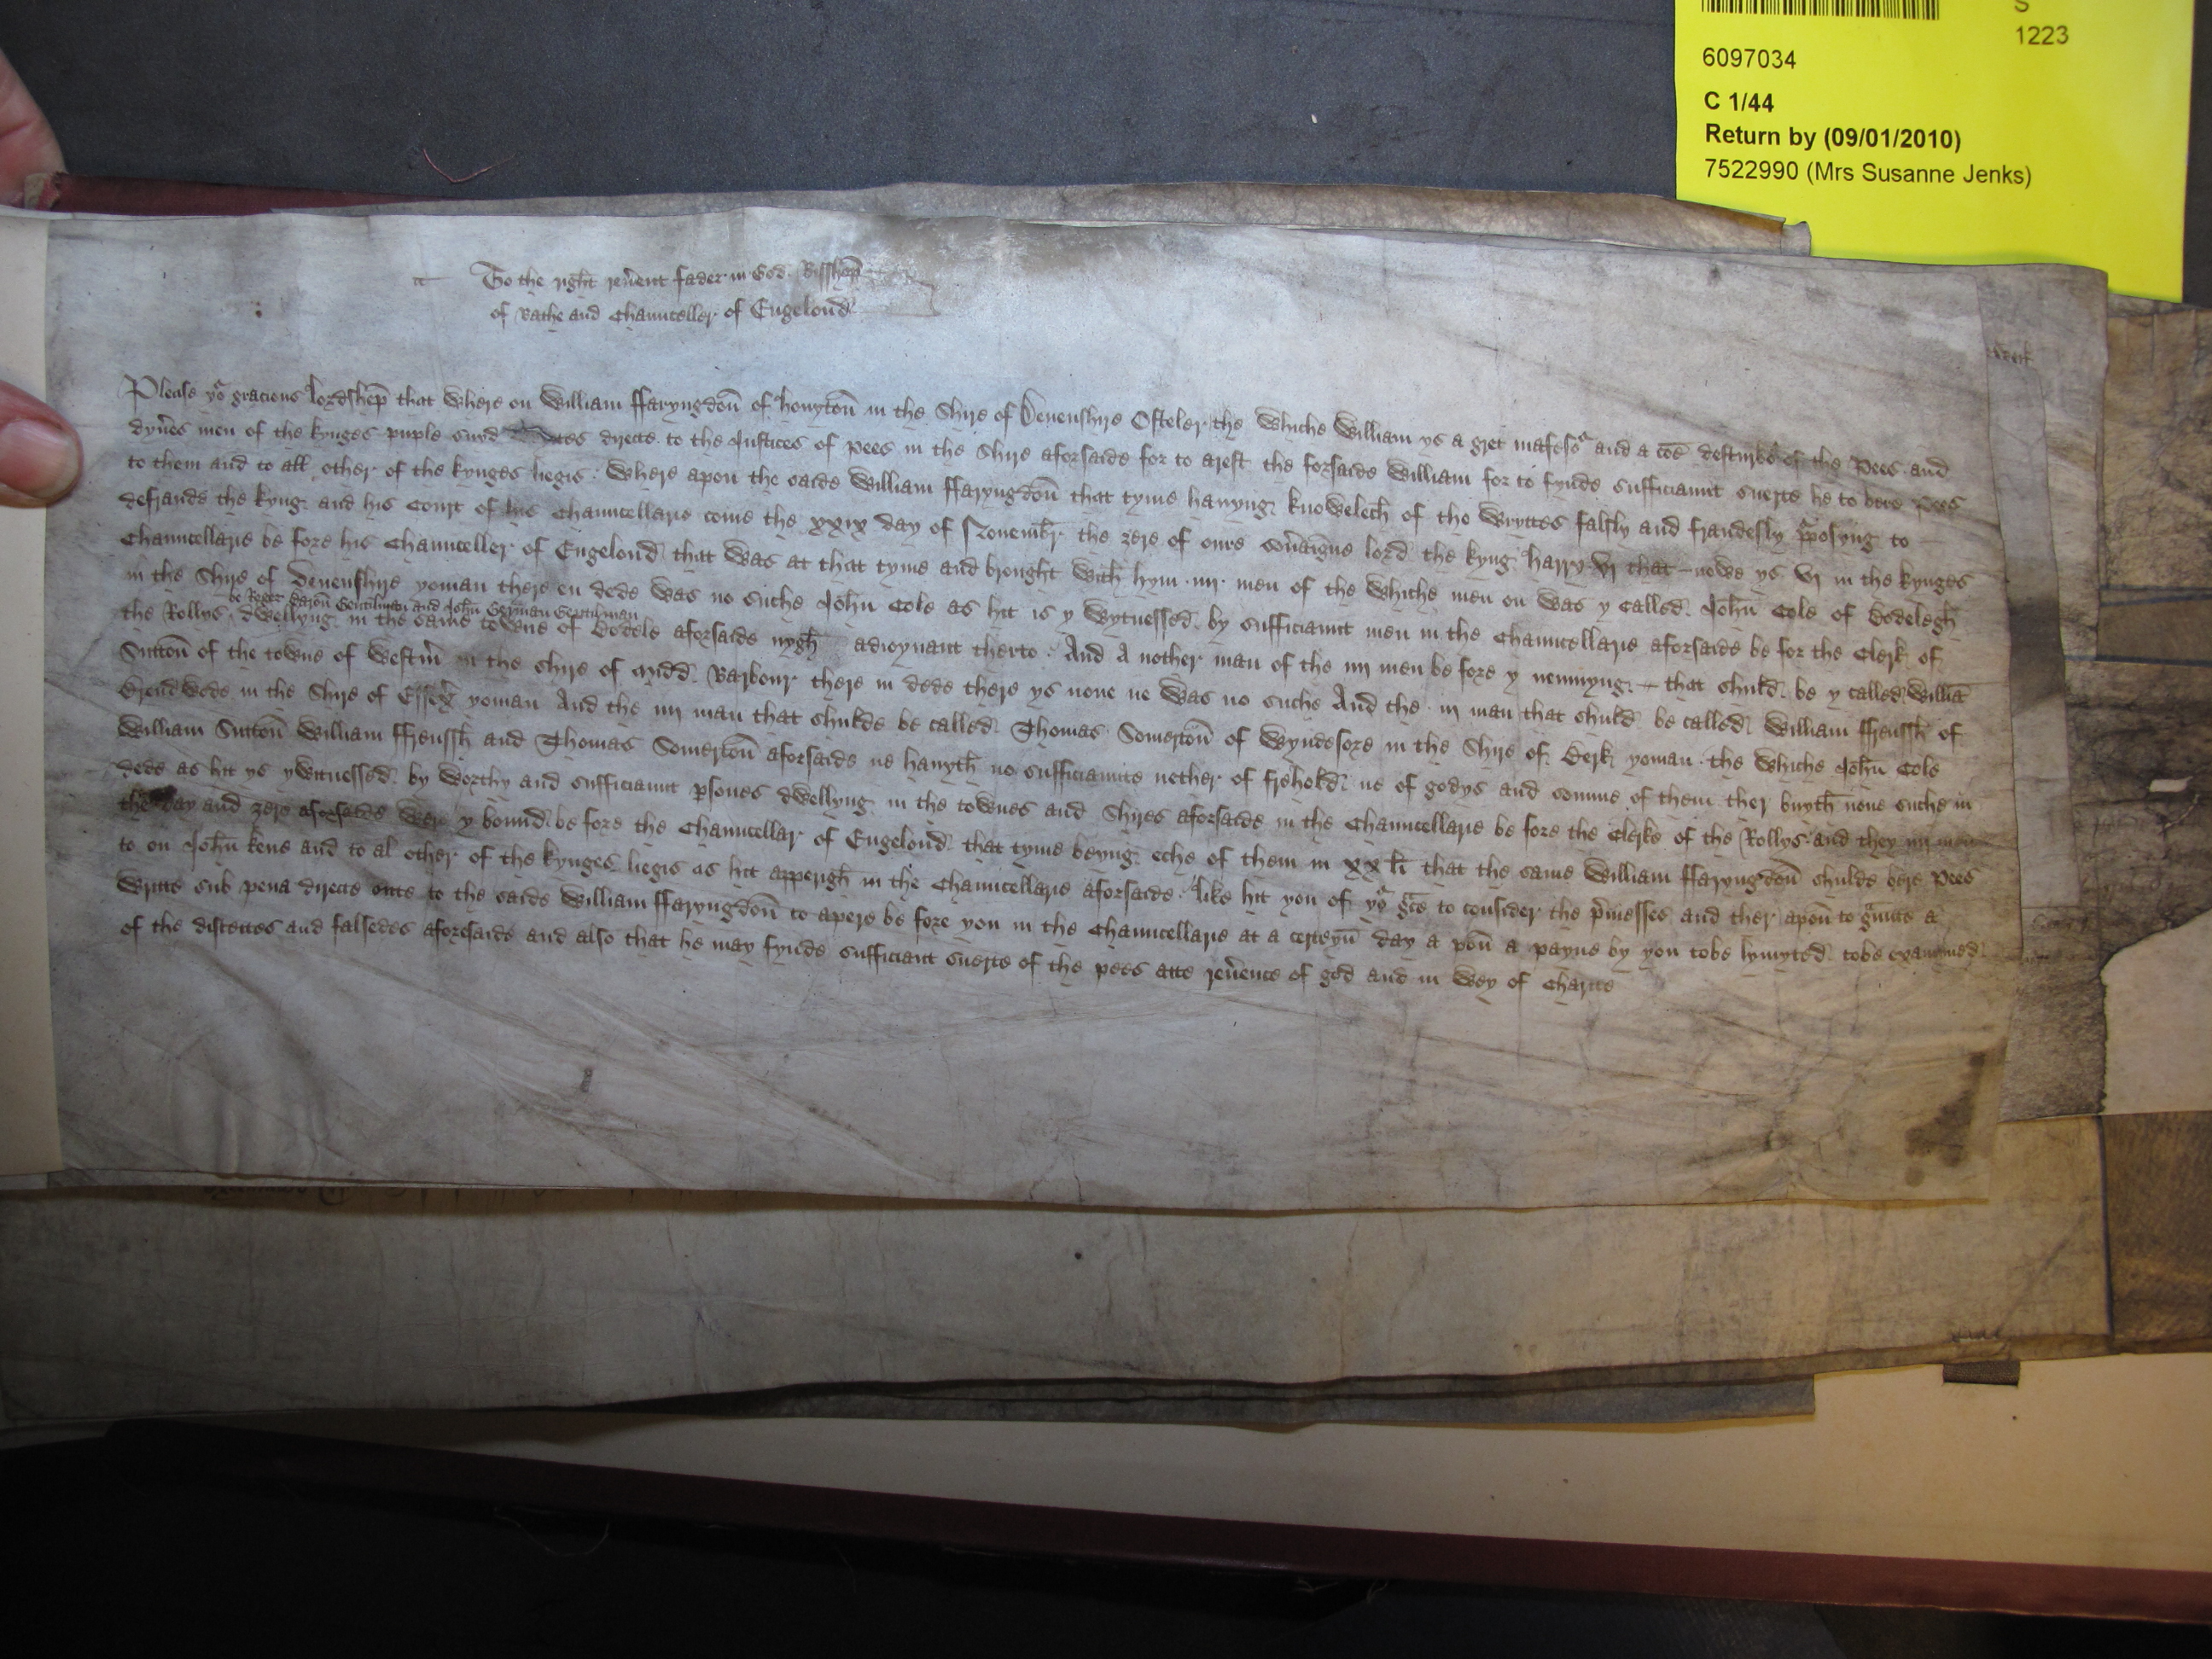 S
1223
6097034
C 1/44
Return by (09/01/2010)
7522990 (Mrs Susanne Jenks)
To the right rev̄ent fader in God Bisshep̄
of Bathe and Chaunceller of Engelond
Please yor gracious lordshep̄ that where on William ffaryngdon̄ of honyton̄ in the Shire of Devenshire Osteler the whiche William ys a gret mafesor and a cōē desturber of the Pees and
dyv̄es men of the kynges puple suyd directe to the Justices of pees in the Shire aforsaide for to arest the forsaide William for to fynde sufficiaunt suerte he to bere pees
to them and to all other of the kynges liegis Where apon the saide William ffaryngdon̄ that tyme havyng knowelech of tho wryttes falsly and fraudesly p̱posyng to
defraude the kyng and his Court of his Chauncellarie come the xxix day of Novembr̄ the ȝere of oure sov̄aigne lord the kyng harry VI that nowe ys VI in the kynges
Chauncellarie be fore his Chaunceller of Engelond that was at that tyme and brought with hym iiij men of the whiche men on was y called John̄ Cole of Bodelegh̄
in the Shire of Devenshire yoman there en dede was no suche John̄ Cole as hit is y wytnessed by sufficiaunt men in the Chauncellarie aforsaide be for the Clerk of
be Roger Baron̄ Gentilman and John̄ German Gentilman
the Rollys dwellyng in the same towne of Bodele aforsaide nygh̄ adioynant therto And A nother man of the iiij men be fore y nemnyng that shuld be y called Willia̅
Sutton̄ of the towne of Westm̄ in the shire of Midd Barbour there in dede there ys none ne was no suche And the iij man that shuld be called William ffrenssh̄ of
Brendwode in the Shire of Essex yoman And the iiij man that shulde be called Thomas Somerton̄ of Wyndesore in the Shire of Berk yoman the whiche John̄ Cole
William Sutton̄ William ffrenssh̄ and Thomas Somerton̄ aforsaide ne havyth̄ no sufficiaunte nether of frehold ne of godys and somme of them ther buyth̄ none suche in
dede as hit ys ywitnessed by worthy and sufficiaunt p̱sones dwellyng in the townes and Shires aforsaide in the Chauncellarie be fore the Clerke of the Rollys and they iiij men
the day and ȝere aforsaide wer y bound be fore the Chauncellar of Engelond that tyme beyng eche of them in xx li that the same William ffaryngdon̄ shulde bere pees
to on John̄ kene and to al other of the kynges liegis as hit apperigh̄ in the Chauncellarie aforsaide like hit you of yor gce to consider the p̄messes and ther apon̄ to g̃unte a
writte sub pena directe onte to the saide William ffaryngdon̄ to apere be fore you in the Chauncellarie at a certeyn̄ day a pon̄ a payne by you tobe lymyted tobe examined
of the disceites and falsedes aforesaide and also that he may fynde sufficiant suerte of the pees atte rev̄ence of god and in wey of Charite